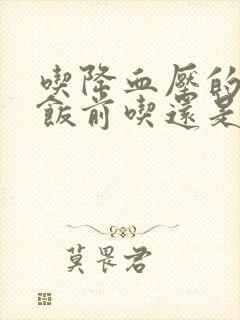 喫降血壓的
飯前喫還是
莫畏君